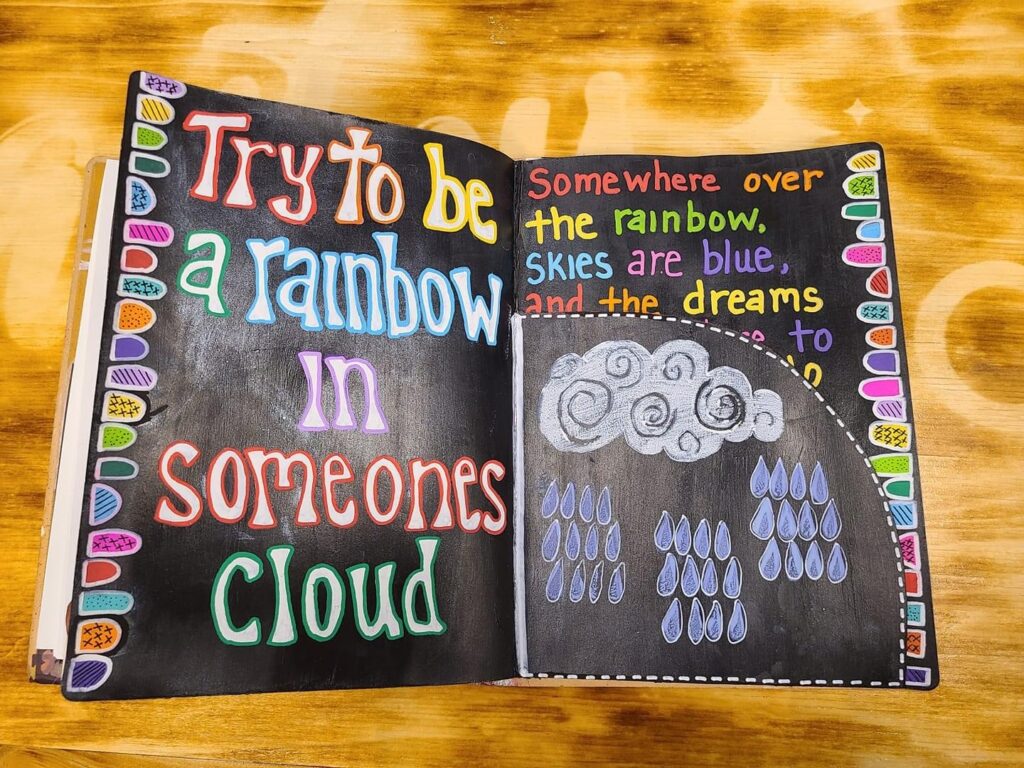 Try to be
a rainbow
in
someones
cloud
Somewhere over
the rainbow.
skies are blue,
and the dreams
to